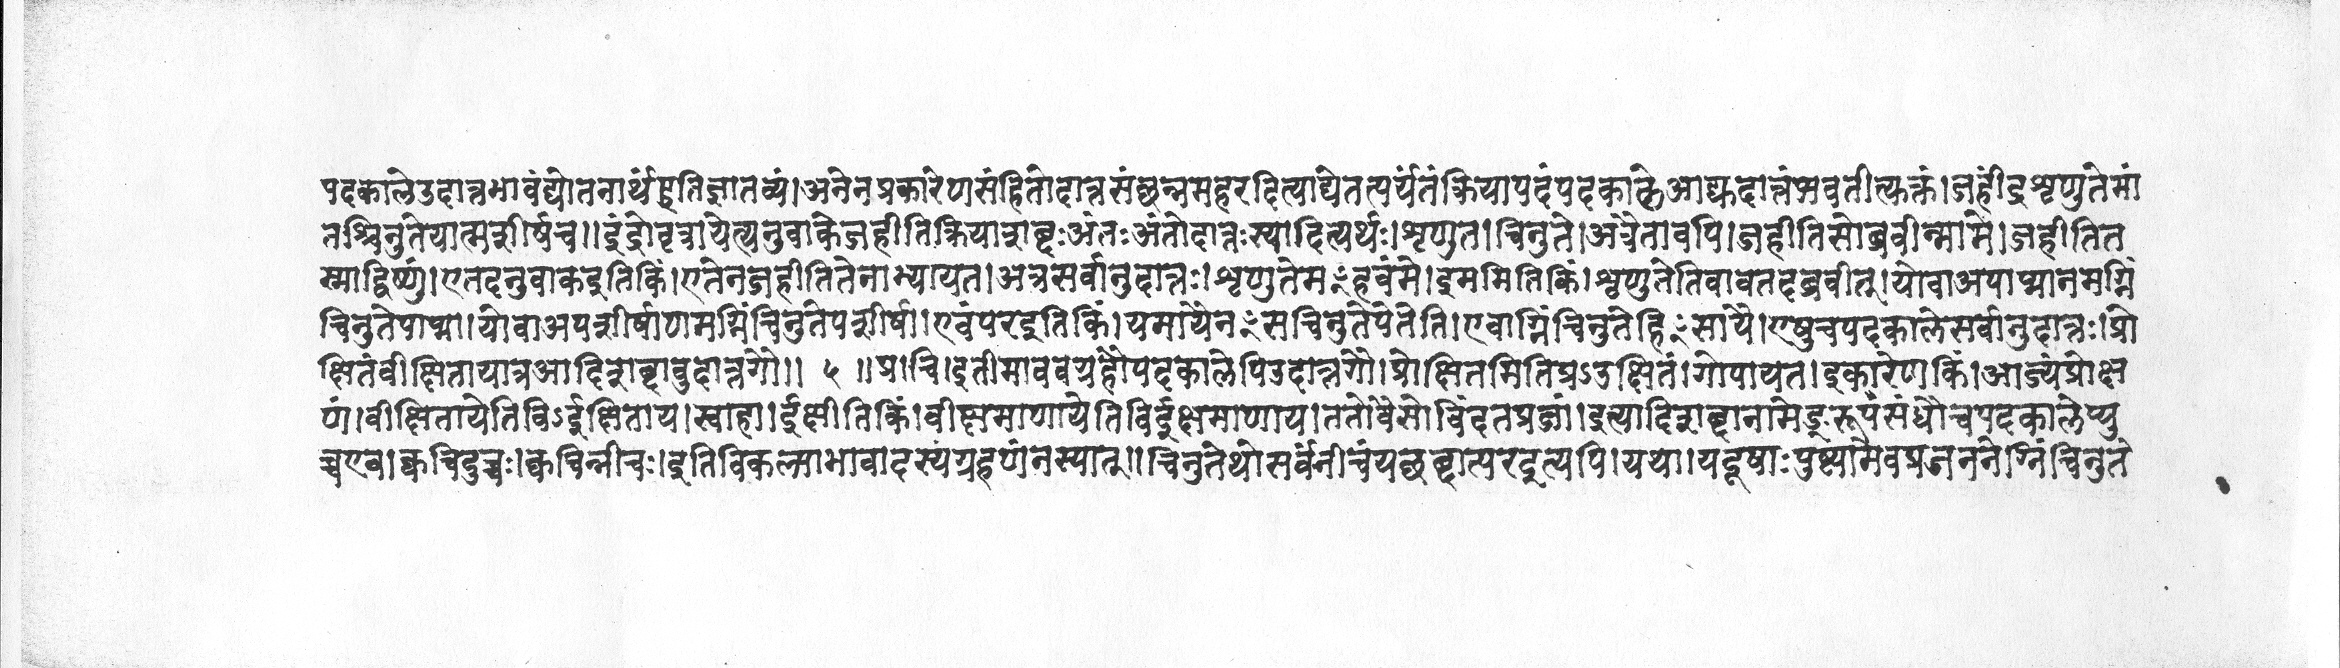 पदकालेउदात्तभावंद्योतनार्थंइतिज्ञातव्यं।अनेनप्रकारेणसंहितोदात्तसंछन्नमहरदित्याद्येतत्पर्यंतंक्रियापदंपदकालेआद्युदात्तंभवतीत्युक्तं।जहींद्रशृणुतेमां
नश्चिनुतेयात्मशीर्षच॥इंद्रोवृत्रायेत्यनुवाकेजहीतिक्रियाशब्दःअंतःअंतोदात्तःस्यादित्यर्थः।शृणुत।चिनुते।अत्रैतावपि।जहीतिसोब्रवीन्मामे।जहीतित
स्माद्विष्ण्यु।एतदनुवाकइतिकिं।एतेनजहीतितेनाभ्यायत।अत्रसर्वानुदात्तः।शृणुतेमꣳहवंमे।इममितिकिं।शृणुतेतिवावतदब्रवीत्।योवाअपाप्मानमग्निं
चिनुतेपाप्मा।योवाअपशीर्षाणमग्निंचिनुतेपशीर्षा।एवंपरइतिकिं।यमायैनꣳसचिनुतेपेतेति।एवाग्निंचिनुतेहिꣳसायै।एषुचपदकालेसर्वानुदात्तः।प्रो
क्षितंवीक्षितायात्रआदिशब्दावुदात्तगो॥ ५ ॥प्राचि।इतीमाववयहौपदकालेपिउदात्तगौ।प्रोक्षितमितिप्रऽउक्षितं।गोपायत।इकारेणकिं।आज्यंप्रोक्ष
णं।वीक्षितायेतिविऽईक्षिताय।स्वाहा।ईक्षीतिकिं।वीक्षमाणायेतिविईक्षमाणाय।ततोवैसोविंदतप्रजां।इत्यादिशब्दानामेङ्ःरूपंसंधौचपदकालेप्यु
च्चएव।क्वचिदुच्चः।क्वचिन्नीचः।इतिविकल्पाभावादस्यंग्रहणंनस्यात्॥चिनुतेथोसर्वंनीचंयछब्दात्परइत्यपि।यथा।यदूषाःपुष्ट्यामेवप्रजननेग्निंचिनुते